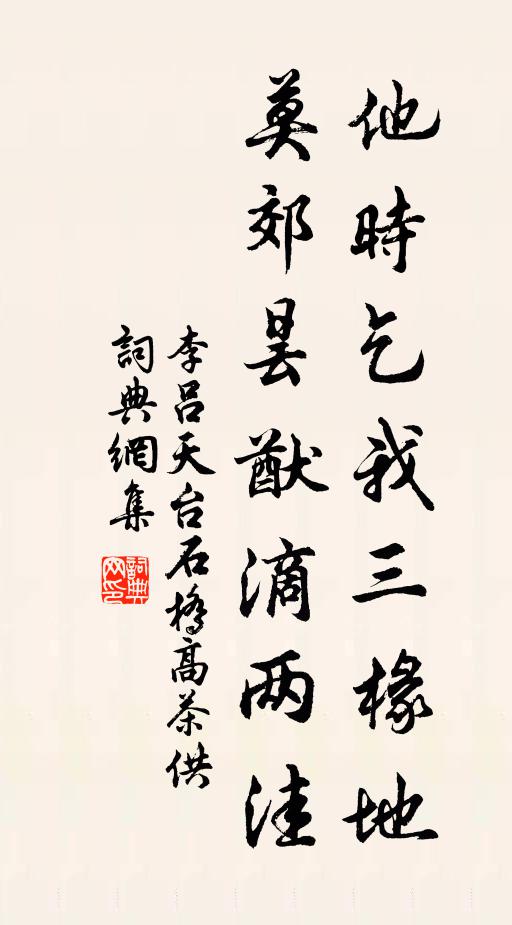 他時乞我三椽地
莫郊昙猷滴两洼
李吕天台石橋高茶供
詞典網集
詞典网印